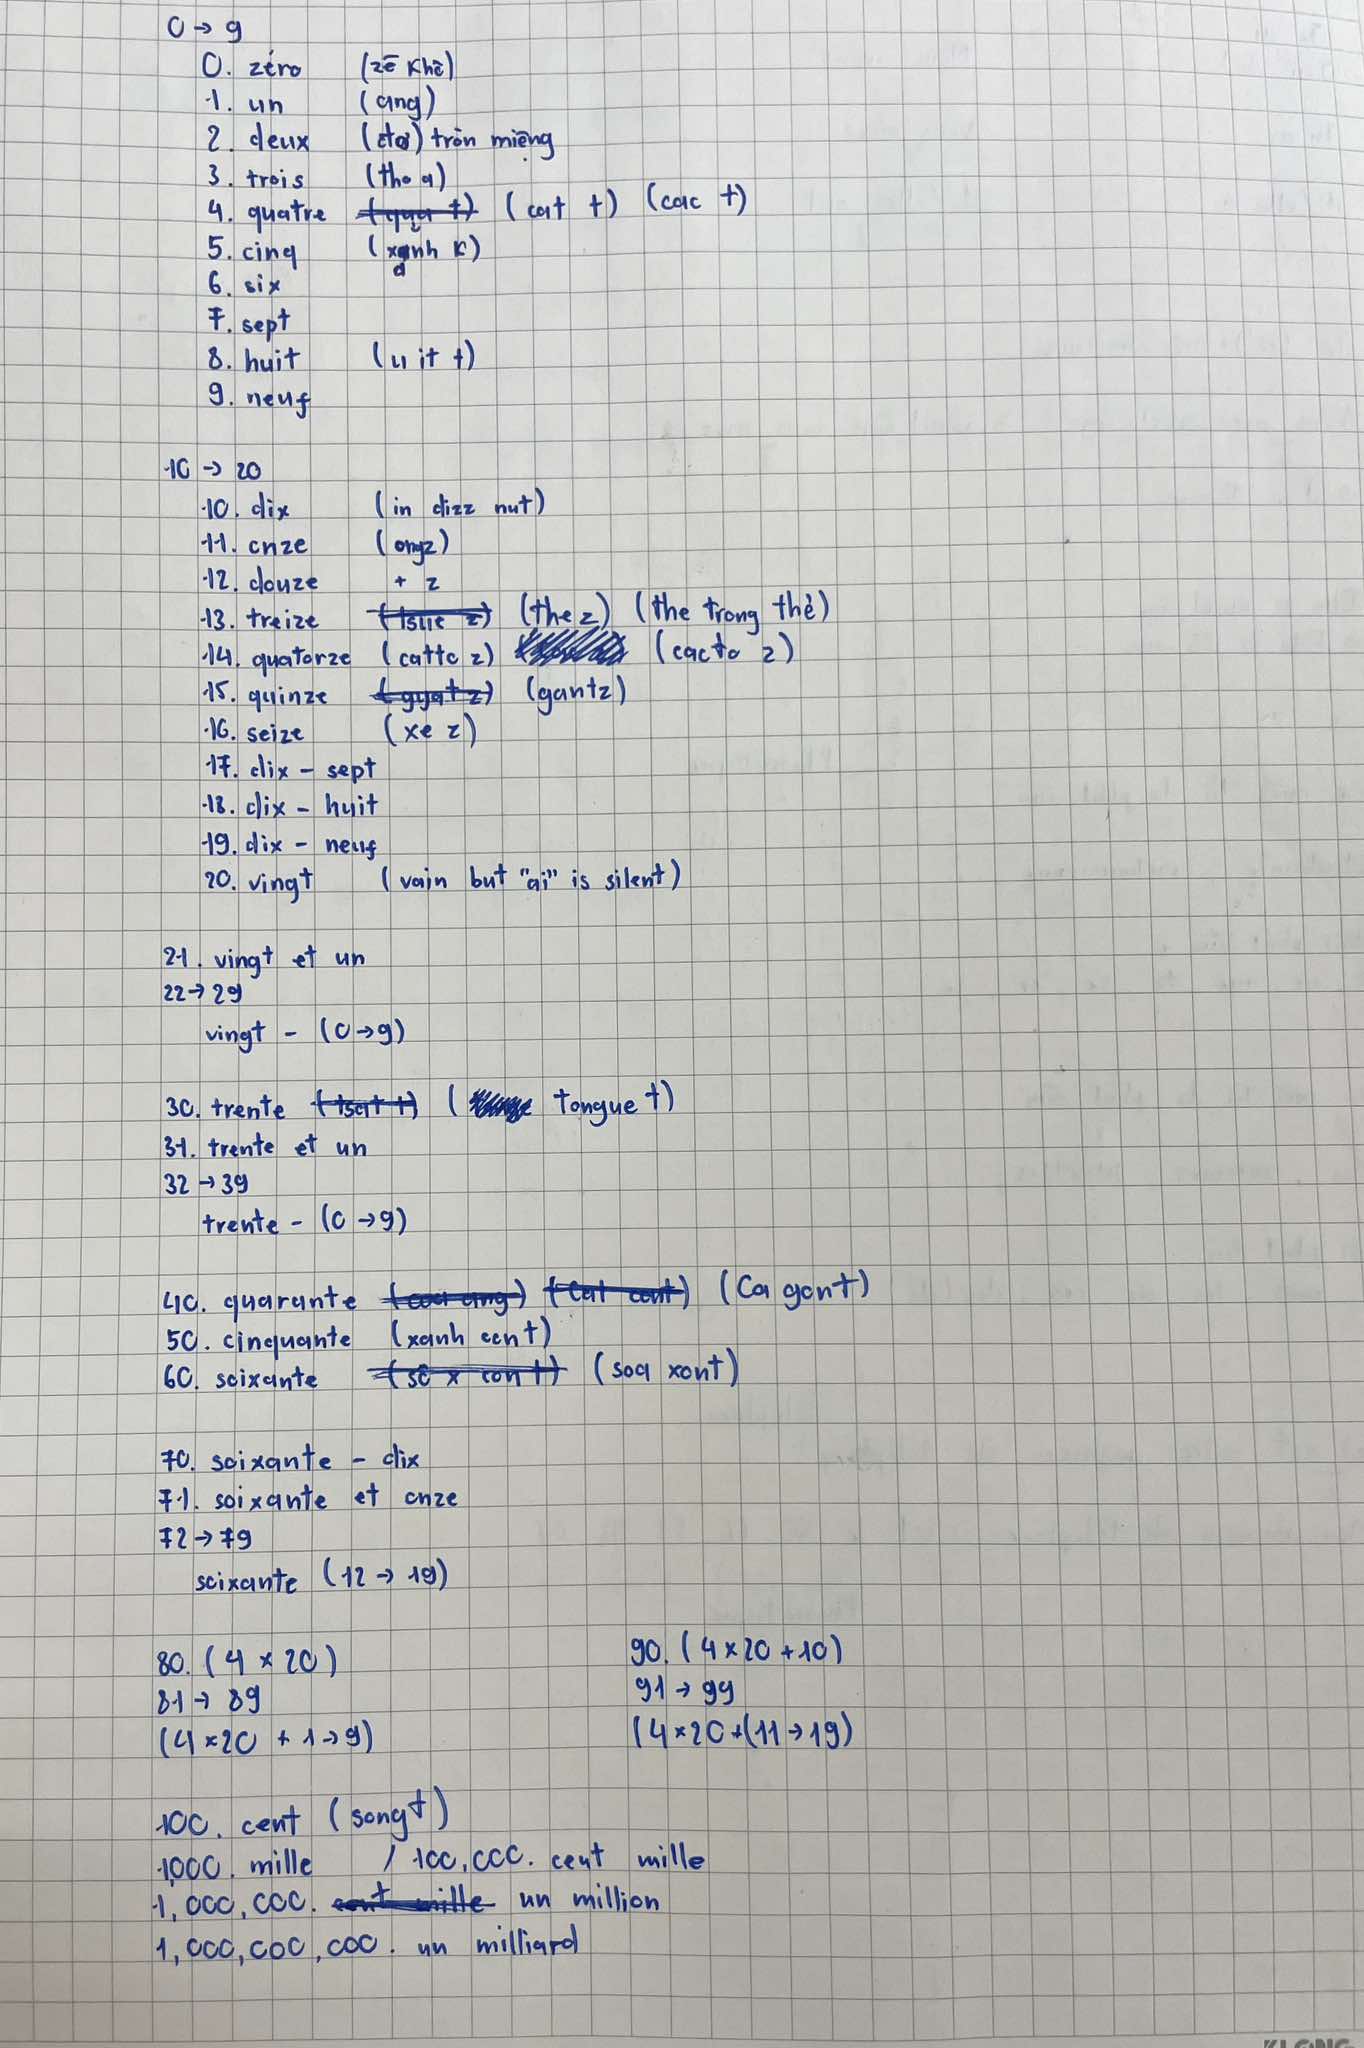 0 → 9
0. zéro (zê khô)
1. un (ang)
2. deux (đơ) tròn miệng
3. trois (tho a)
4. quatre (cat t) (cac t)
5. cinq (xanh k)
6. six
7. sept
8. huit (u it t)
9. neuf
10 → 20
10. dix (in dizz nut)
11. onze (ongz)
12. douze + z
13. treize (the z) (the trong thẻ)
14. quatorze (catto z) (cacto z)
15. quinze (gantz)
16. seize (xe z)
17. dix - sept
18. dix - huit
19. dix - neuf
20. vingt (vain but "ai" is silent)
21. vingt et un
22 → 29
vingt - (0 → 9)
30. trente (tongue t)
31. trente et un
32 → 39
trente - (0 → 9)
40. quarante (Ca gont)
50. cinquante (xanh cont)
60. soixante (soa xont)
70. soixante - dix
71. soixante et onze
72 → 79
soixante (12 → 19)
80. (4 × 20) 90. (4 × 20 + 10)
81 → 89 91 → 99
(4 × 20 + 1 → 9) (4 × 20 + (11 → 19)
100. cent (songt)
1000. mille / 100,000. cent mille
1,000,000. un million
1,000,000,000. un milliard